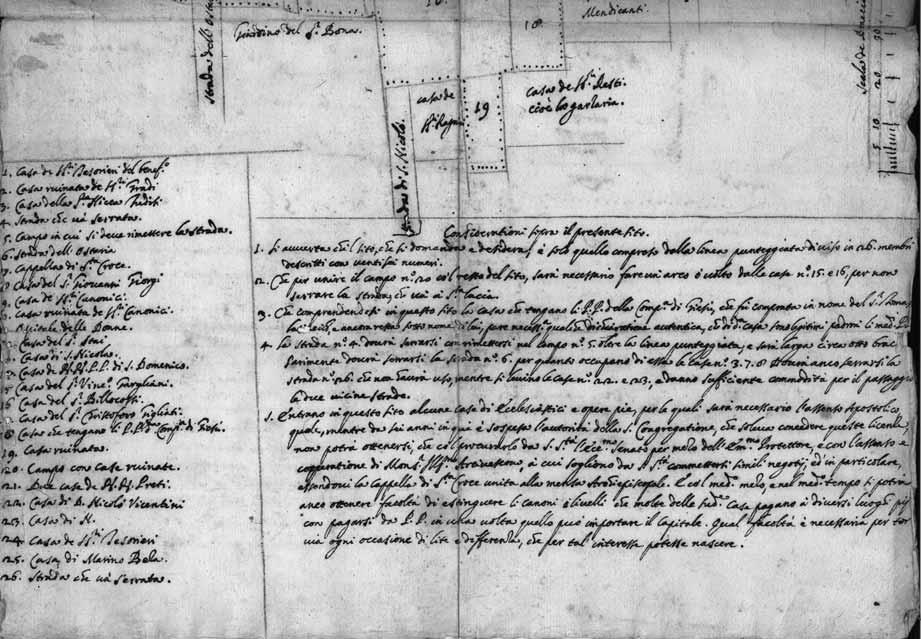 Mendicanti.
18
Giardino del S.r Bona.
Strada dell'
casa de
19
casa de H.ri Resti
cioè logarlaria.
Strada di S. Nicolò.
Scala de
30
20
10
5
1. Casa de H.ri Resorieri del
2. Casa ruinata de H.ri Gradi
3. Casa della
4. Strada che và serrata.
5. Campo in cui si deve rimettere la strada.
6. Strada dell'Osteria
7. Cappella di S.ta Croce.
8. Casa del S. Giovanni Giorgi
9. Casa de H.ri Canonici.
Casa ruinata de H.ri Canonici.
Ospitale delle Donne.
Casa del S.r
Casa di S. Nicolo.
Casa de P.P. di S. Domenico.
15 Casa del S.r
16 Casa del S.r
Casa del S.r Cristoforo
18 Casa che tengano li P.P. d.a Comp.a di Giesù.
19. Casa ruinata.
20. Campo con case ruinate.
21. Due case de Preti.
22. Casa di D. Nicolò Vicentini
23. Casa di N.
24. Casa de H.ri Resorieri
25. Casa di Marino Bela.
26. Strada che và serrata.
Considerationi sopra il presente sito.
1. Si avverta che il sito, che si domanda e desidera, è solo quello compreso dalla linea punteggiata diviso in 26. membri
descritti con ventisei numeri.
2. Che per unire il campo n.o 20 col resto del sito, sarà necessario fare un arco ò volto dalle case n.o 15. e 16, per non
serrare la strada, che và à S.ta Lucia.
3. Che comprendendosi in questo sito la casa che tengano li P.P. della Comp.a di Giesù, che fù comprata in nome del S.r Bona,
ancor resta sotto nome di lui, pare dichiaratione autentica, che di d.a casa sono legitimi padroni li med.mi P.P.
4. La strada n.o 4. dourà serrarsi con rimettersi nel campo n.o 5. oltre la linea punteggiata, e sarà larga circa otto brac
Parimente dourà serrarsi la strada n.o 6. per quanto occupano di essa le case n.o 3. 7. 8. Dourà anco serrarsi la
strada n.o 26. che non haurà uso, mentre si levino le case n.o 22. e 23, e danno sufficiente commodità per il passaggio
le due vicine strade.
5. Entrano in questo sito alcune case di Ecclesiastici e opere pie, per le quali sarà necessario l'assenso Apostolico,
quale, mentre da sei anni in quà è sospesa l'autorità della S. Congregatione, che soleva concedere queste licenze,
non potrà ottenersi, che col procurarlo da S. S.tà l'Ecc.mo Senato per mezo dell'Em.mo Protettore, e con l'assenso e
cooperatione di Mons.r Ill.mo Arcivescovo, à cui sogliono da S. S.tà commettersi simili negotij, ed in particolare,
essendoci la Cappella di S.ta Croce unita alla mensa Archiepiscopale. E col med.mo mezo, e nel med.mo tempo si potrà
anco ottenere facoltà di estinguere li canoni ò livelli che molte delle sud.e case pagano à diversi luoghi pij
con pagarsi da P.P. in una volta quello può importare il capitale. Qual facoltà è necessaria per tor
via ogni occasione di lite e differenza, che per tal interesse potesse nascere.